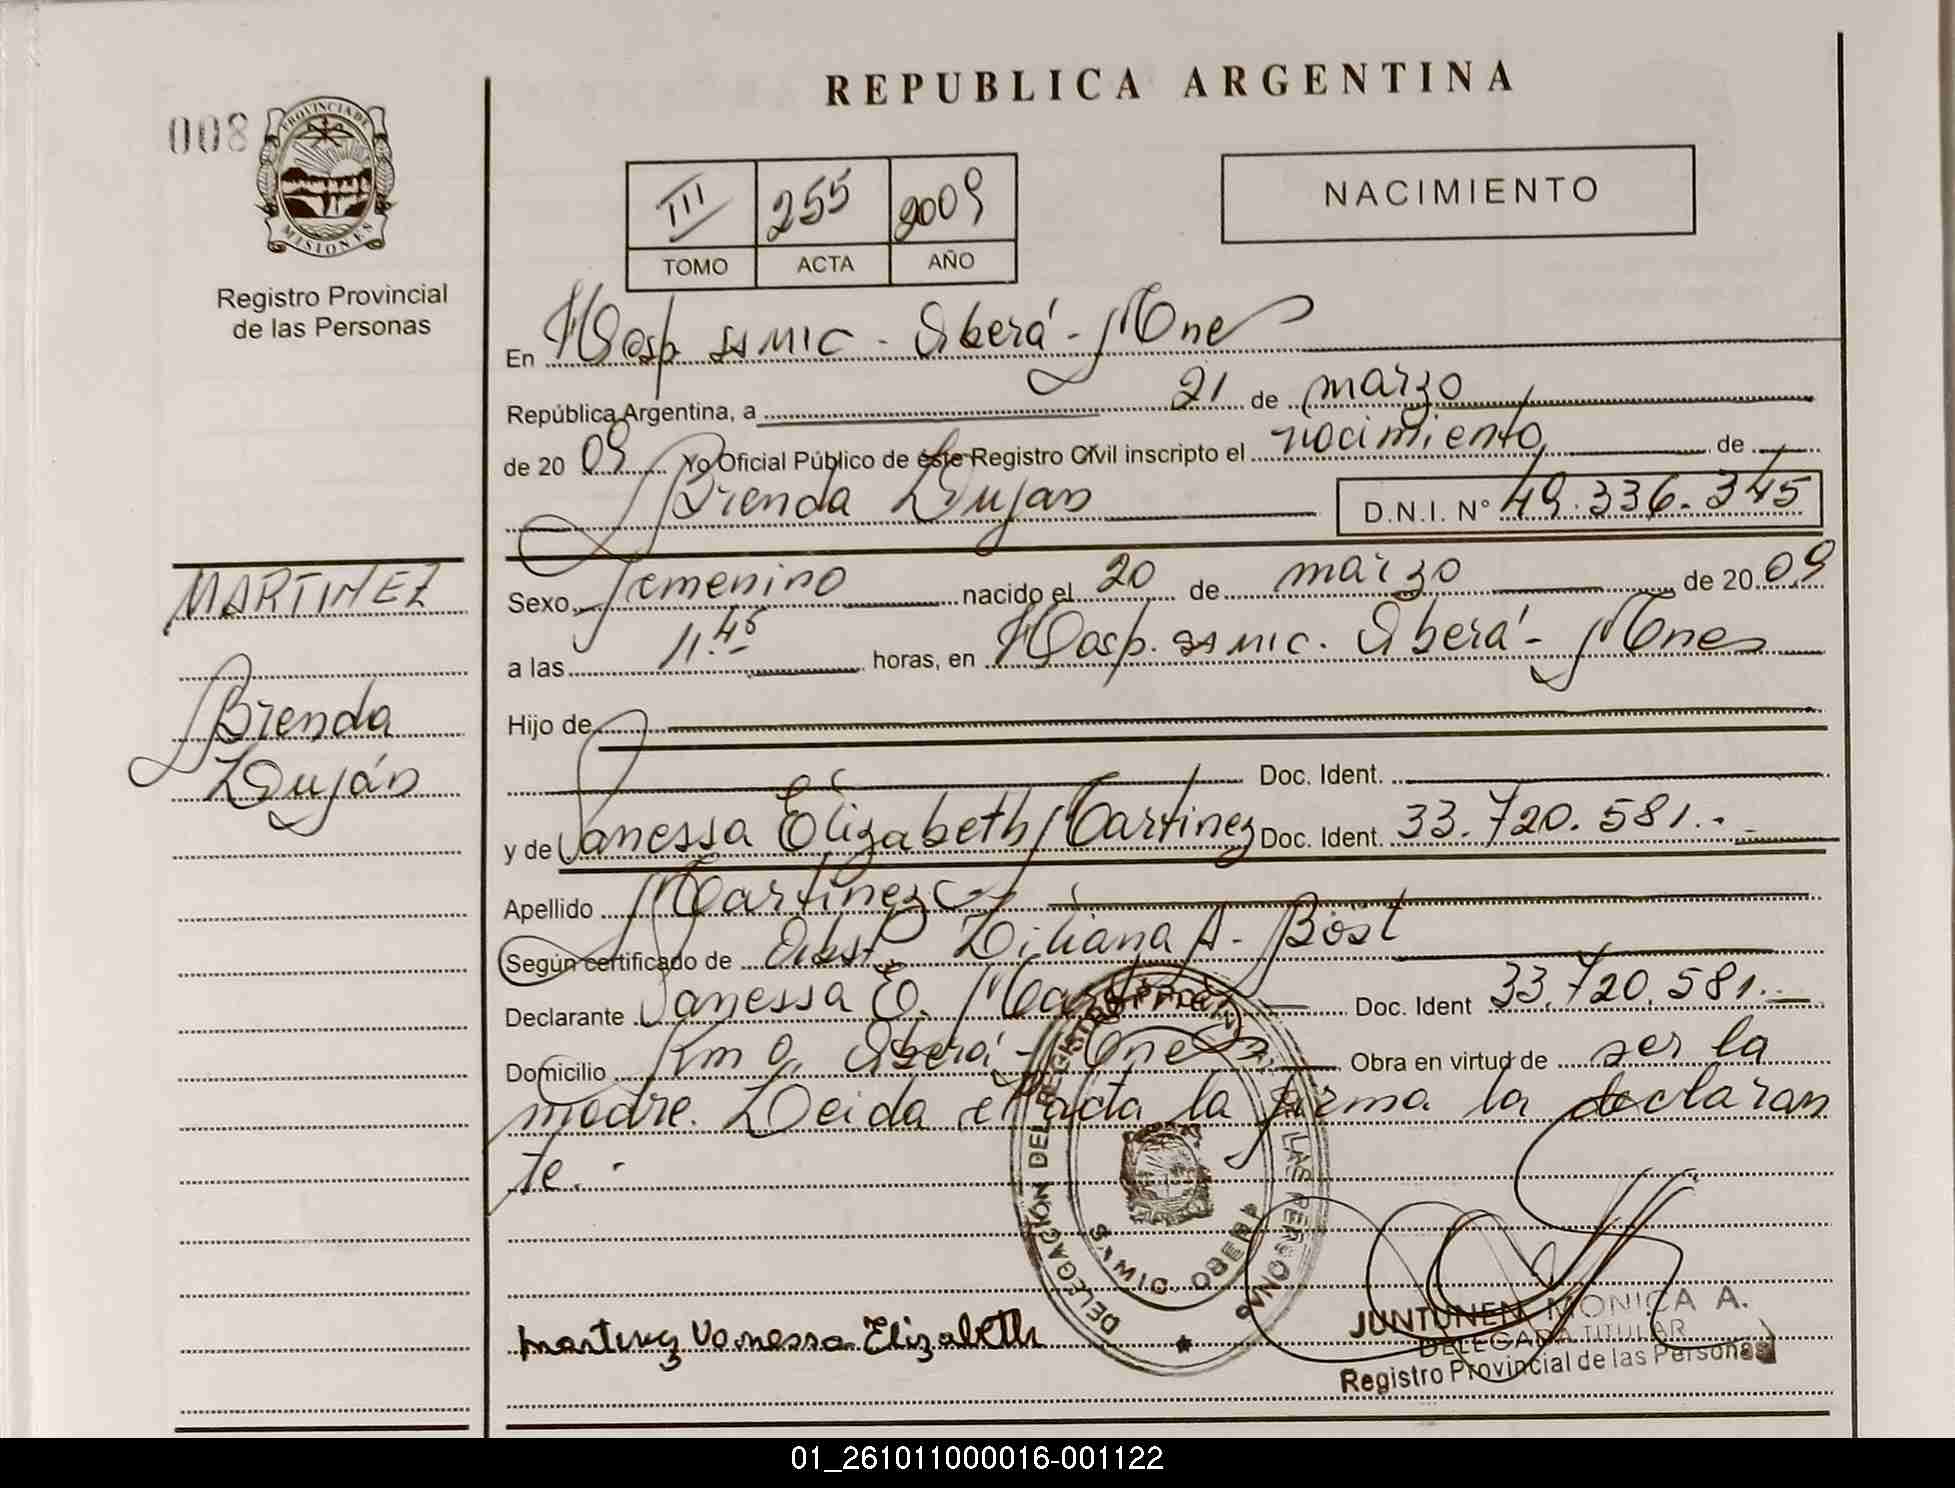 REPUBLICA ARGENTINA
008
PROVINCIA DE
MISIONES
Registro Provincial
de las Personas
NACIMIENTO
III 255 2009
TOMO ACTA AÑO
En Hosp. SAMIC - Oberá - Mnes
República Argentina, a 21 de marzo
de 20 09 Yo Oficial Público de éste Registro Civil inscripto el nacimiento de
Brenda Lujan D.N.I. N° 49.336.345
MARTINEZ
Brenda
Luján
Sexo femenino nacido el 20 de marzo de 20 09
a las 11.45 horas, en Hosp. SAMIC. Oberá - Mnes
Hijo de
Doc. Ident.
y de Vanessa Elizabeth Martinez Doc. Ident. 33.720.581.-
Apellido Martinez
Según certificado de Obst. Liliana A. Bost
Declarante Vanessa E. Martinez Doc. Ident 33.720.581.-
Domicilio Km 0, Oberá - Mnes Obra en virtud de ser la
madre. Leida el acta la firma la declaran
te. -
DELEGACIÓN DEL REGISTRO PROVINCIAL DE LAS PERSONAS
SAMIC OBERA
Martinez Vanessa Elizabeth
JUNTUNEN MONICA A.
DELEGADA TITULAR
Registro Provincial de las Personas
01_261011000016-001122